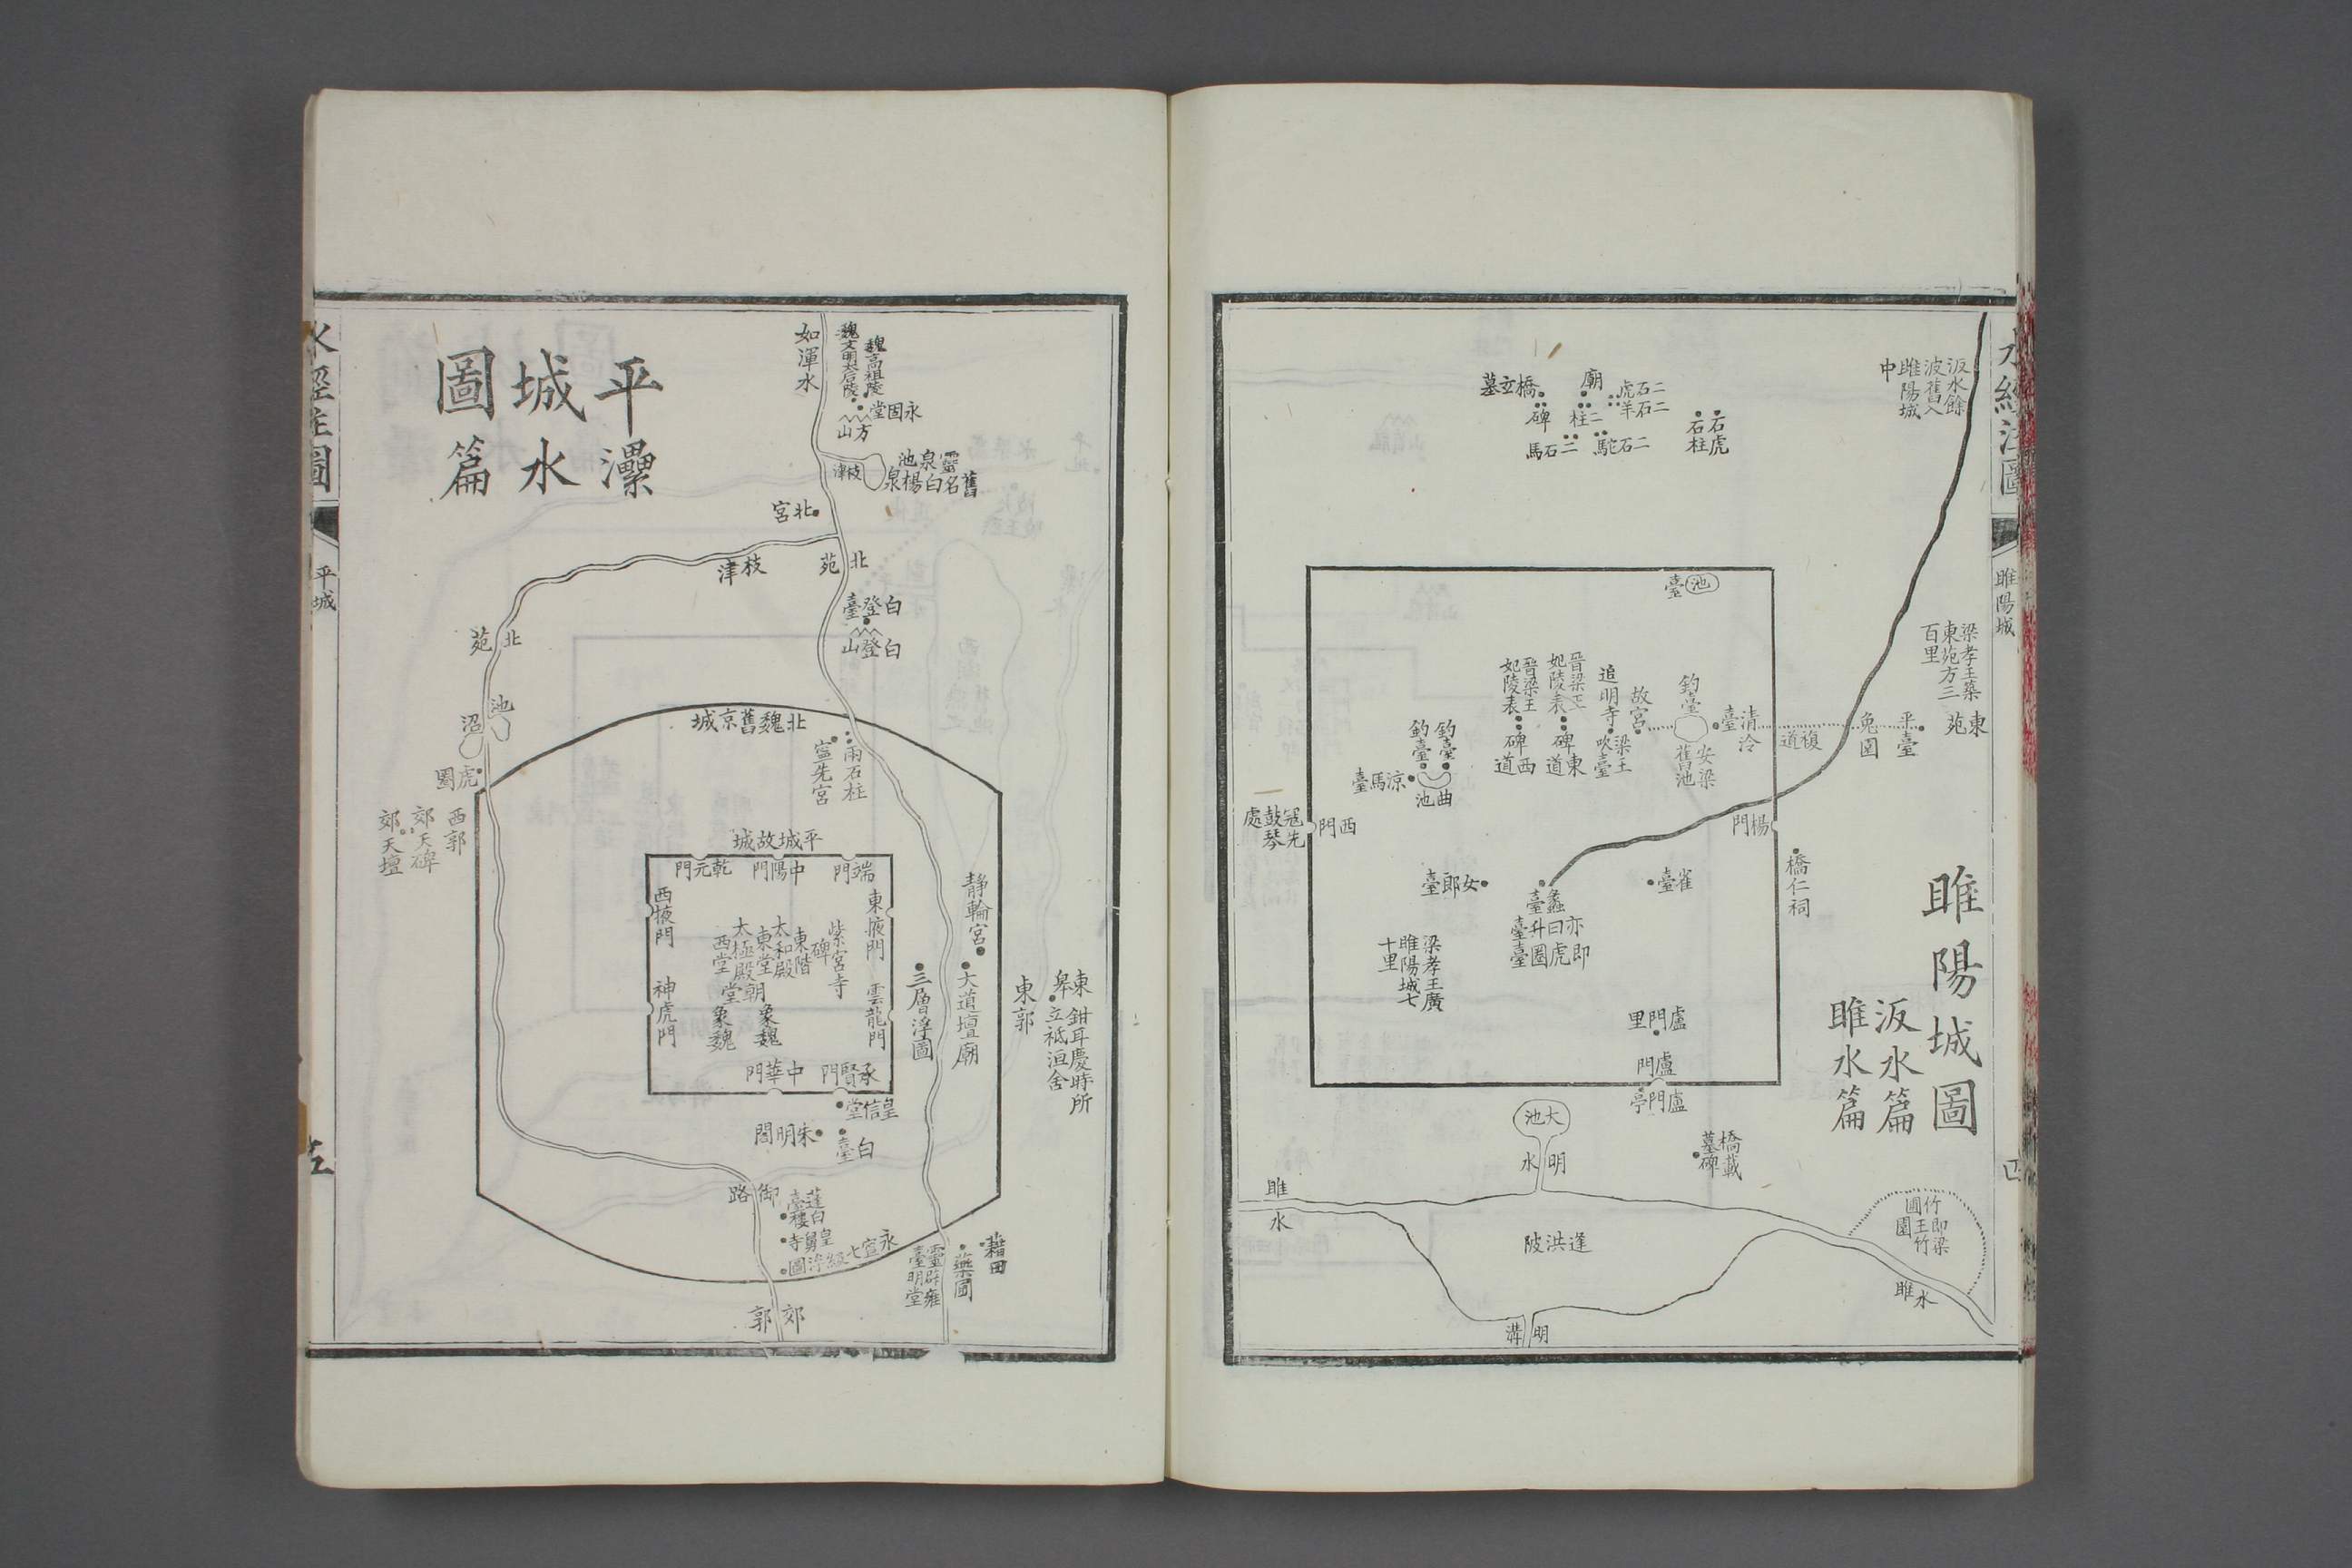 水經注圖
睢陽城
睢陽城圖
汳水篇
睢水篇
汳水餘
波舊入
睢陽城
中
石虎
石柱
廟
二石虎
二石羊
二柱
二石駝
二石馬
橋玄墓
碑
池
臺
梁孝王築
東苑方三
百里
東苑
平臺
兔園
複道
清泠臺
釣臺
安梁
舊池
故宮
追明寺
梁王
吹臺
晉梁王
妃陵表
碑
東道
晉梁王
妃陵表
碑
西道
釣臺
釣臺
曲池
涼馬臺
西門
寇先
鼓琴
處
楊門
橋仁祠
雀臺
女郎臺
蠡臺
亦曰升臺
即虎圈臺
梁孝王廣
睢陽城七
十里
盧門里
盧門
盧門亭
橋載
墓碑
大池
明水
睢水
逢洪陂
明溝
竹圃
即梁王竹園
睢水
平城圖
灅水篇
如渾水
魏高祖陵
魏文明太后陵
永固堂
方山
靈泉池
舊名白楊泉
枝津
北宮
北苑
枝津
白登臺
白登山
北苑
池
沼
虎圈
北魏舊京城
兩石柱
寧先宮
西郭
郊天碑
郊天壇
平城故城
端門
中陽門
乾元門
東掖門
雲龍門
西掖門
神虎門
紫宮寺
碑
東階
太和殿
東堂
太極殿
西堂
朝堂
象魏
象魏
承賢門
中華門
皇信堂
朱明閣
白臺
静輪宮
大道壇廟
三層浮圖
東郭
東皋
鉗耳慶時所
立祗洹舍
御路
蓬臺
白樓
皇舅寺
永寧七級浮圖
郊郭
靈臺
辟雍
明堂
藥圃
藉田
水經注圖
平城
五